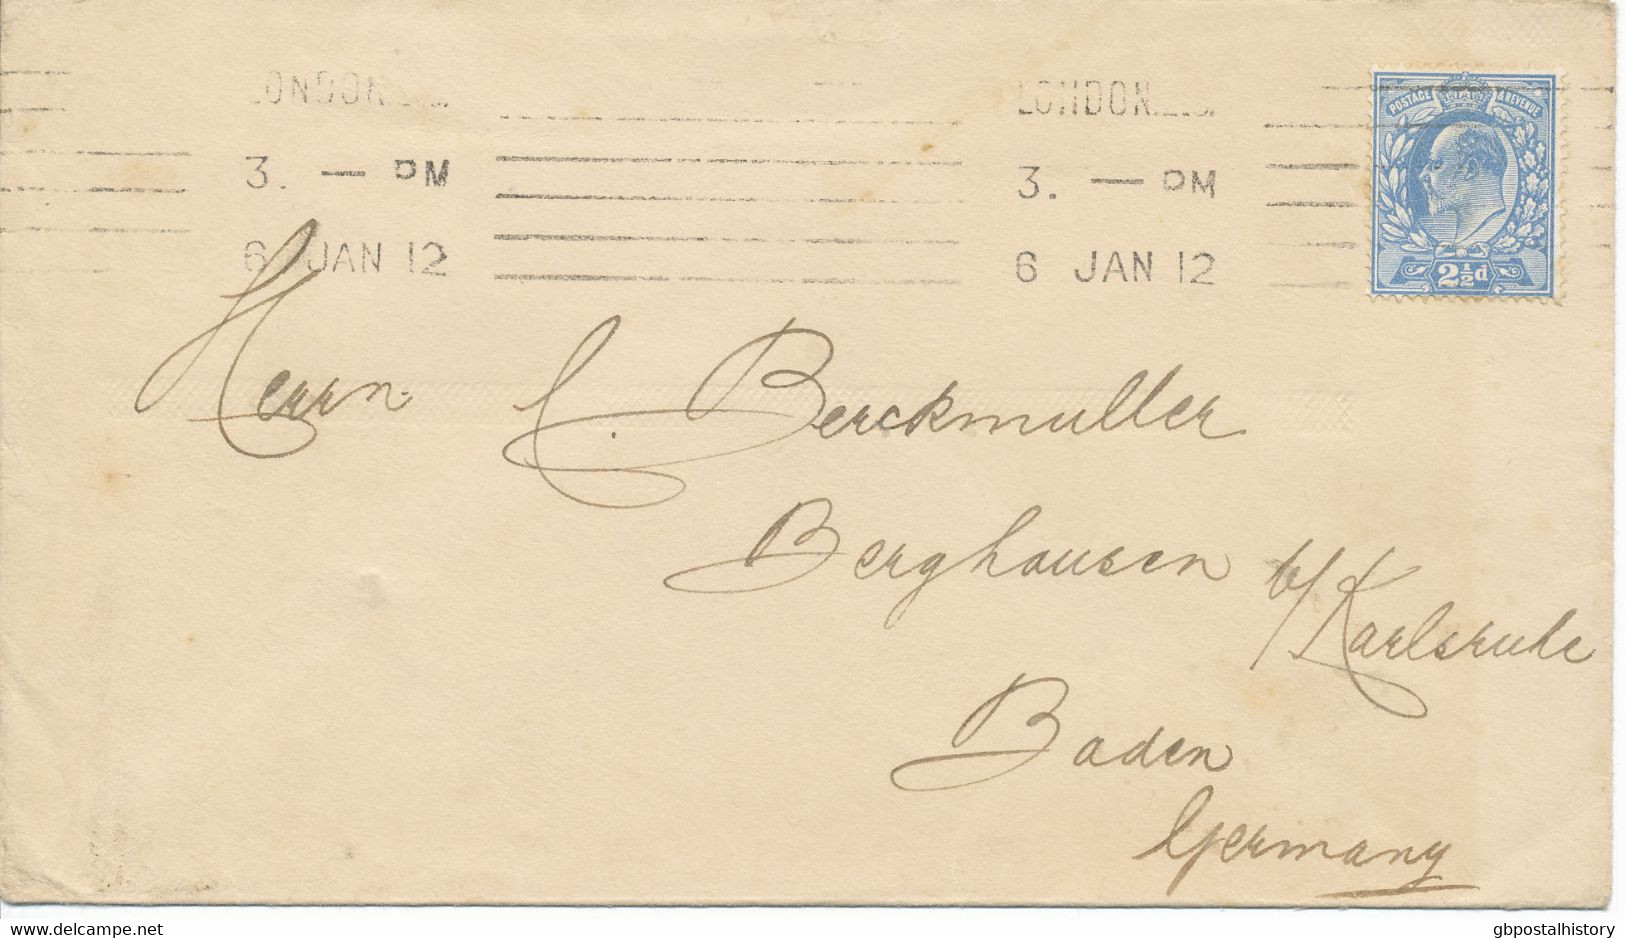 LONDON LONDON
3. — PM 3. — PM
6 JAN 12 6 JAN 12
POSTAGE & REVENUE
2½d
Herrn C. Berckmuller
Berghausen b/ Karlsruhe
Baden
Germany
www.delcampe.net
gbpostalhistory